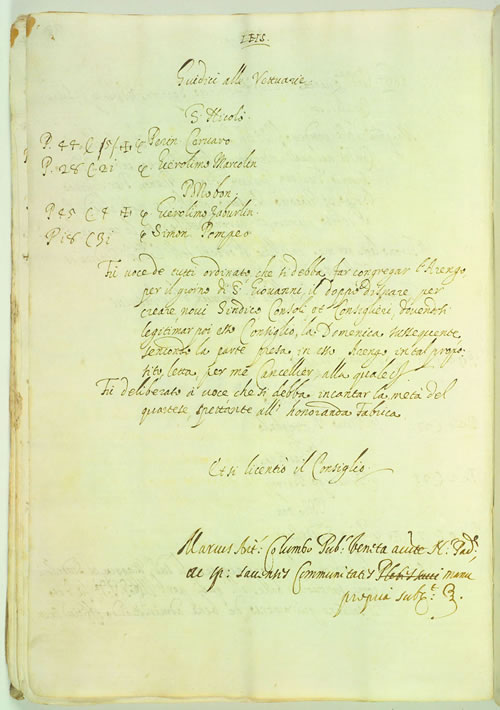 Giudici alle Vettuarie
S Nicolò
P. 44 C 15 Penin Cervaro
P. 28 C 21 Gierolimo Marcolin
P. Nobon
P 45 C 4 Gierolimo Zaburlin
P 18 C 31 Simon Pompeo
Fù à voce de tutti ordinato che si debba far congregar l'Arengo
per il giorno di S. Giovanni, il doppo disnare per
creare novi Sindico Consoli et Consiglieri, dovendosi
legitimar poi esso Consiglio, la Domenica susseguente
secondo la parte presa in esso Arengo in tal propo-
sito, letta per me Cancellier, alla quale
Fù deliberato à voce che si debba incantar la metà del
quartese spettante all' honoranda Fabrica
Et si licentiò il Consiglio
Marcus Ant: Columbo Pub: Veneta
Communitatis manu
propria